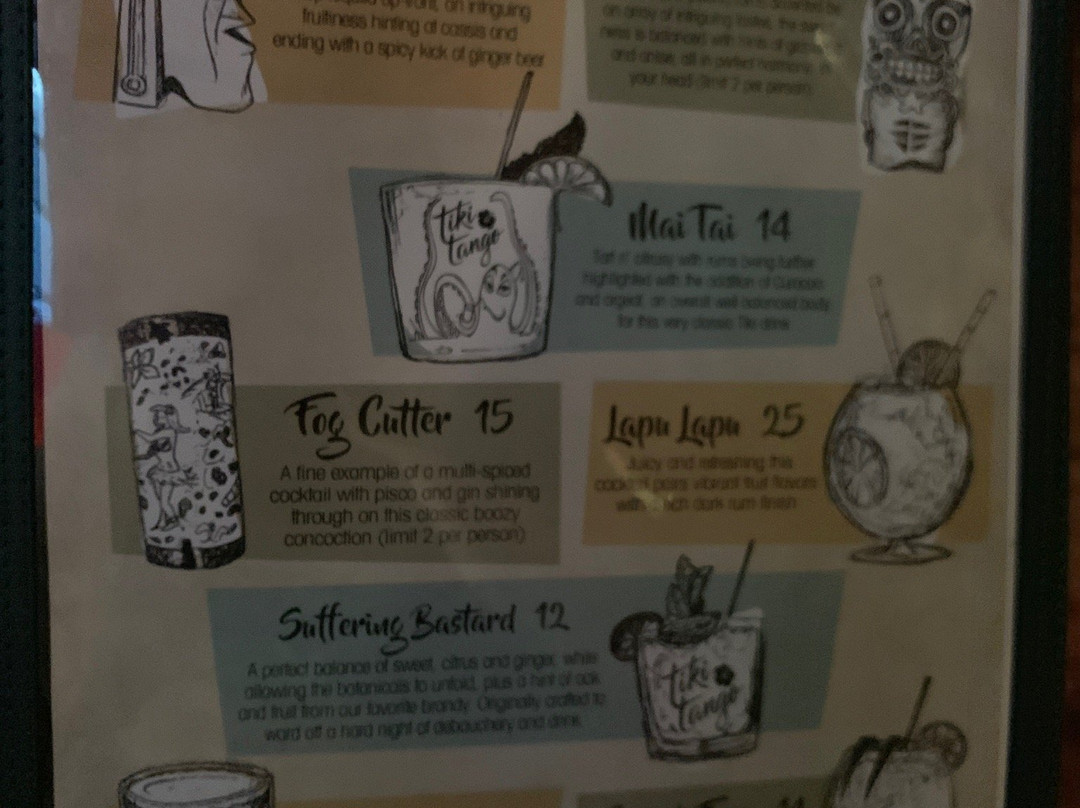 up-front, an intriguing
fruitiness hinting at cassis and
ending with a spicy kick of ginger beer
an array of intriguing tastes, the
ness is balanced with hints of
and anise, all in perfect harmony. In
your head (limit 2 per person)
tiki
tango
Mai Tai 14
Tart n' citrusy with rums being further
highlighted with the addition of Curacao
and orgeat, an overall well-balanced body
for this very classic Tiki drink
Fog Cutter 15
A fine example of a multi-spiced
cocktail with pisco and gin shining
through on this classic boozy
concoction (limit 2 per person)
Lapu Lapu 25
Juicy and refreshing this
cocktail pairs vibrant fruit flavors
with rich dark rum finish
Suffering Bastard 12
A perfect balance of sweet, citrus and ginger, while
allowing the botanicals to unfold, plus a hint of oak
and fruit from our favorite brandy. Originally crafted to
ward off a hard night of debauchery and drink.
tiki
tango